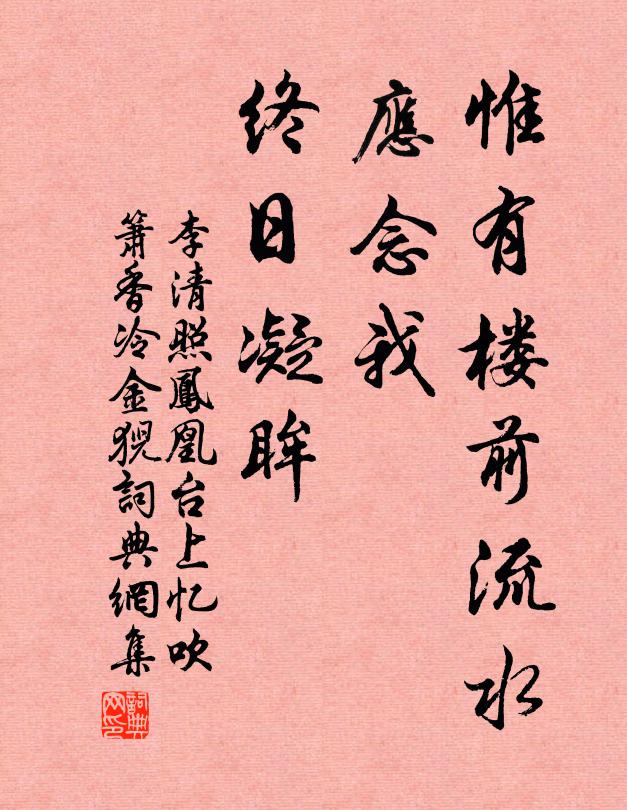 惟有楼前流水
應念我
終日凝眸
李清照鳳凰台上忆吹
簫香冷金猊詞典網集
詞典网印